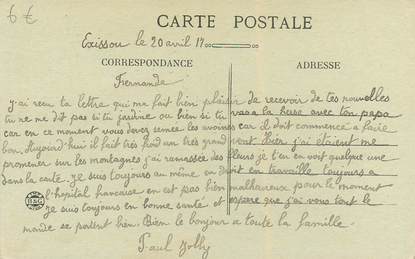 6 €
CARTE POSTALE
Exissou le 20 avril 17
CORRESPONDANCE
ADRESSE
Fernande
j'ai recu ta lettre qui me fait bien plaisir de recevoir de tes nouvelles
tu ne me dit pas si tu jardine ou bien si tu vas a la herse avec ton papa
car en ce moment vous devez semer les avoines car il doit commencé a faire
bon. Aujourd'hui il fait tres froid un tres grand vent. Hier j'ai etaient me
promener sur les montagnes j'ai ramassée des fleurs je t'en en voit quelque une
dans la carte. Je suis toujours au meme en droit en travaille toujours a
l'hôpital francaise en est pas bien malhaureux pour le moment
B&G
je suis toujours en bonne santé et espere que j'ai vous tout le
monde se portent bien. Bien le bonjour a toute la famille.
Paul